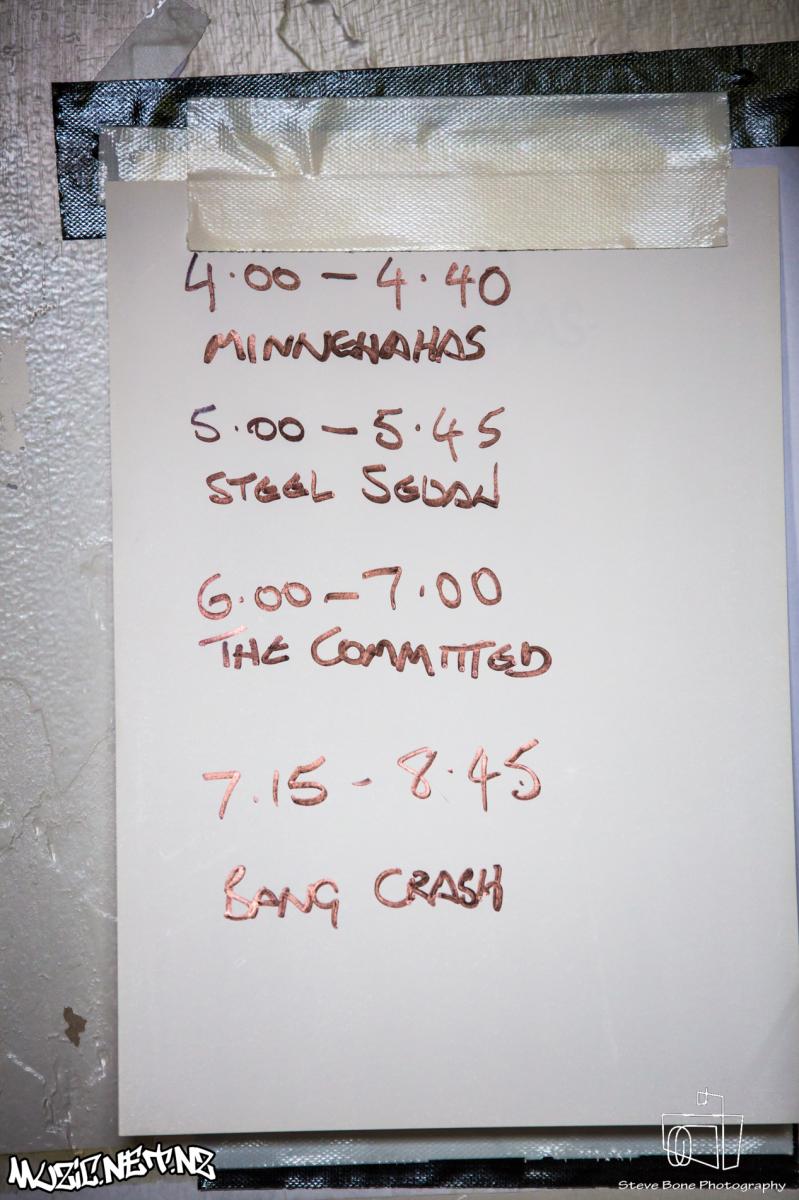 4.00 - 4.40
MINNEHAHAS
5.00 - 5.45
STEEL SEDAN
6.00 - 7.00
THE COMMITTED
7.15 - 8.45
BANG CRASH
MUZIC.NET.NZ
Steve Bone Photography